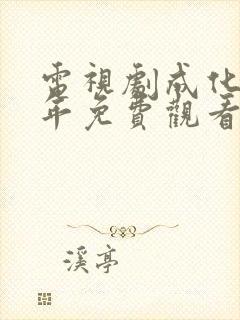 電視劇成化
年免費觀看
溪亭